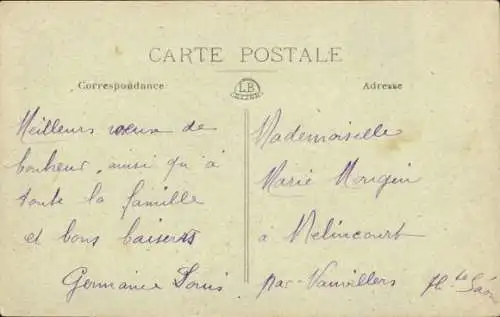 CARTE POSTALE
Correspondance
LB
Adresse
Meilleurs vœux de
bonheur, ainsi qu'à
toute la famille
et bons baisers
Germaine Louis
Mademoiselle
Marie Mougin
à Melincourt
par Vauvillers Hte Saône